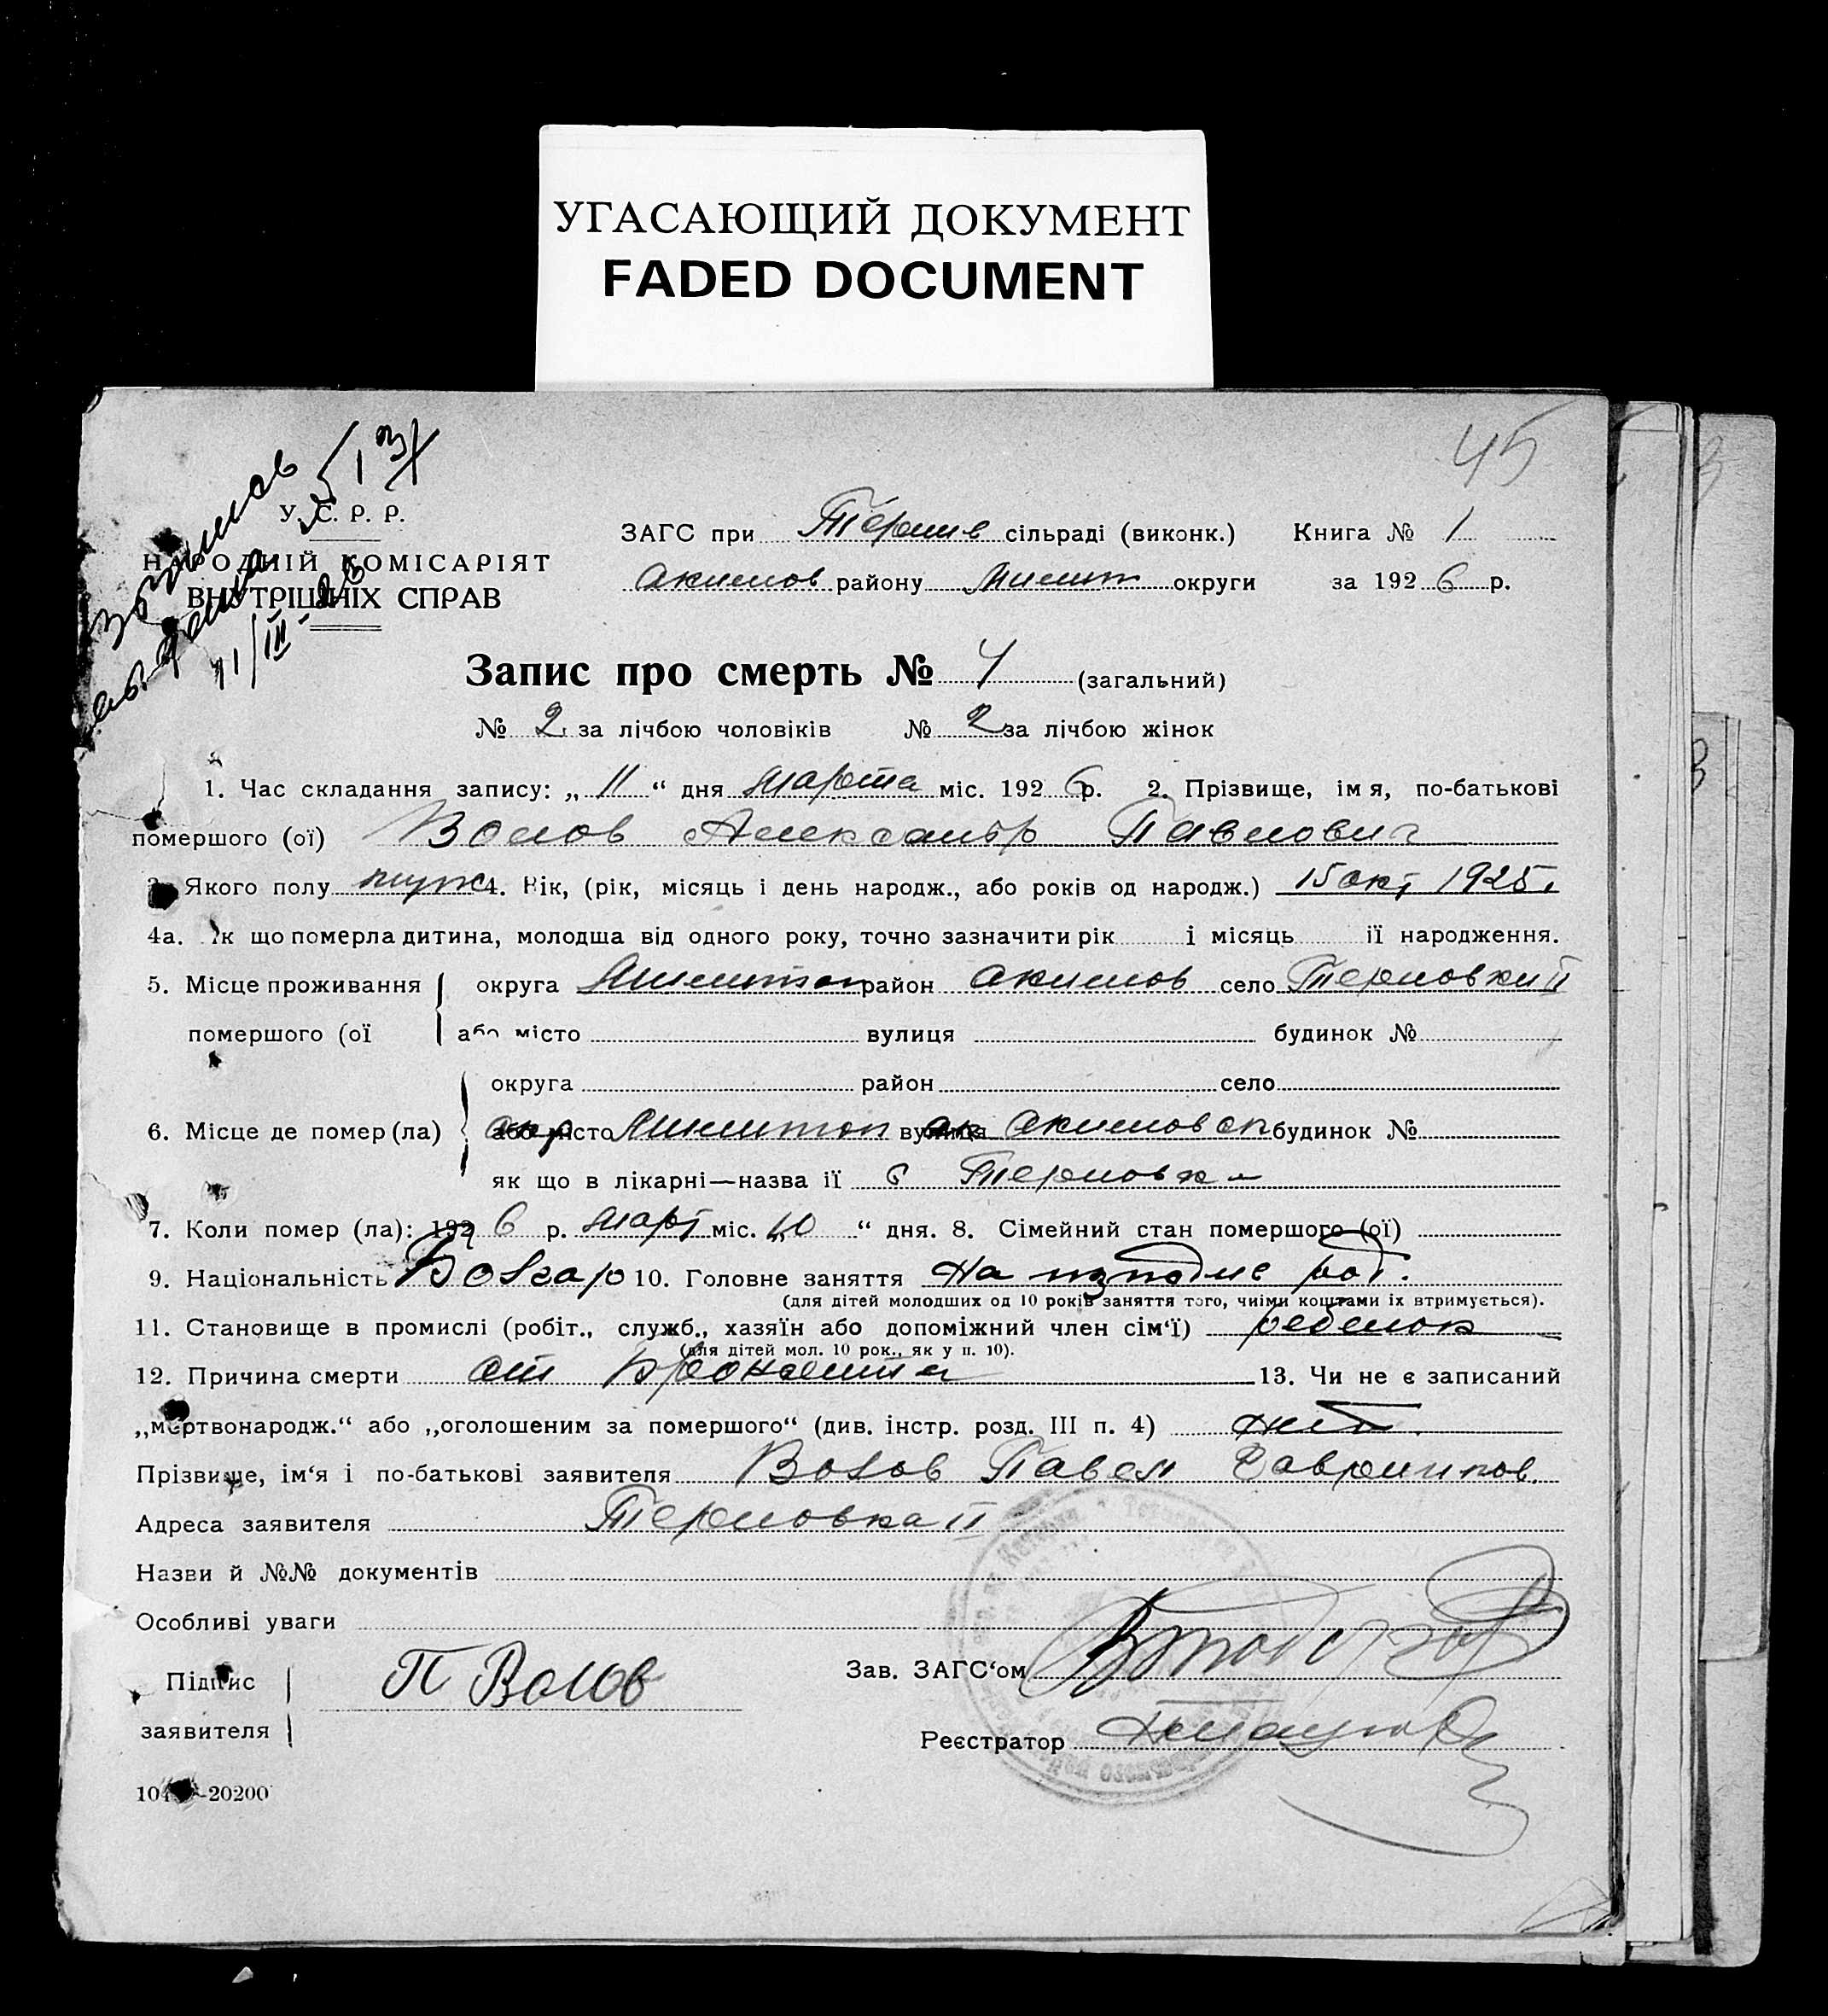 УГАСАЮЩИЙ ДОКУМЕНТ
FADED DOCUMENT
45
У. С. Р. Р.
НАРОДНІЙ КОМІСАРІЯТ
ВНУТРІШНІХ СПРАВ
11/III-26
ЗАГС при Тернов сільраді (виконк.) Книга № 1
Акимов району Мелит округи за 1926 р.
Запис про смерть № 4 (загальний)
№ 2 за лічбою чоловіків № 2 за лічбою жінок
1. Час складання запису: „ 11 “ дня марта міс. 1926 р. 2. Прізвище, імя, по-батькові
помершого (ої) Волов Александр Павлович
3. Якого полу муж 4. Вік, (рік, місяць і день народж., або років од народж.) 15 окт 1925.
4а. Як що померла дитина, молодша від одного року, точно зазначити рік і місяць її народження.
5. Місце проживання округа Мелитоп район Акимов село Терновки II
помершого (ої або місто вулиця будинок №
округа район село
6. Місце де помер (ла) або місто Мелитоп вулиця Акимовск будинок №
як що в лікарні—назва її с Терновка
7. Коли помер (ла): 1926 р. март міс. „10 “ дня. 8. Сімейний стан помершого (ої)
9. Національність Болгар 10. Головне заняття на
(для дітей молодших од 10 років заняття того, чиїми коштами їх втримується).
11. Становище в промислі (робіт., служб., хазяїн або допоміжний член сім'ї) ребенок
(для дітей мол. 10 рок., як у п. 10).
12. Причина смерти от Бронхита 13. Чи не є записаний
„мертвонародж.“ або „оголошеним за помершого“ (див. інстр. розд. III п. 4) нет.
Прізвище, ім'я і по-батькові заявителя Волов Павел Гаврилов.
Адреса заявителя Терновка II
Назви й №№ документів
Особливі уваги
Підпис П Волов Зав. ЗАГС'ом
заявителя
Реєстратор
-20200